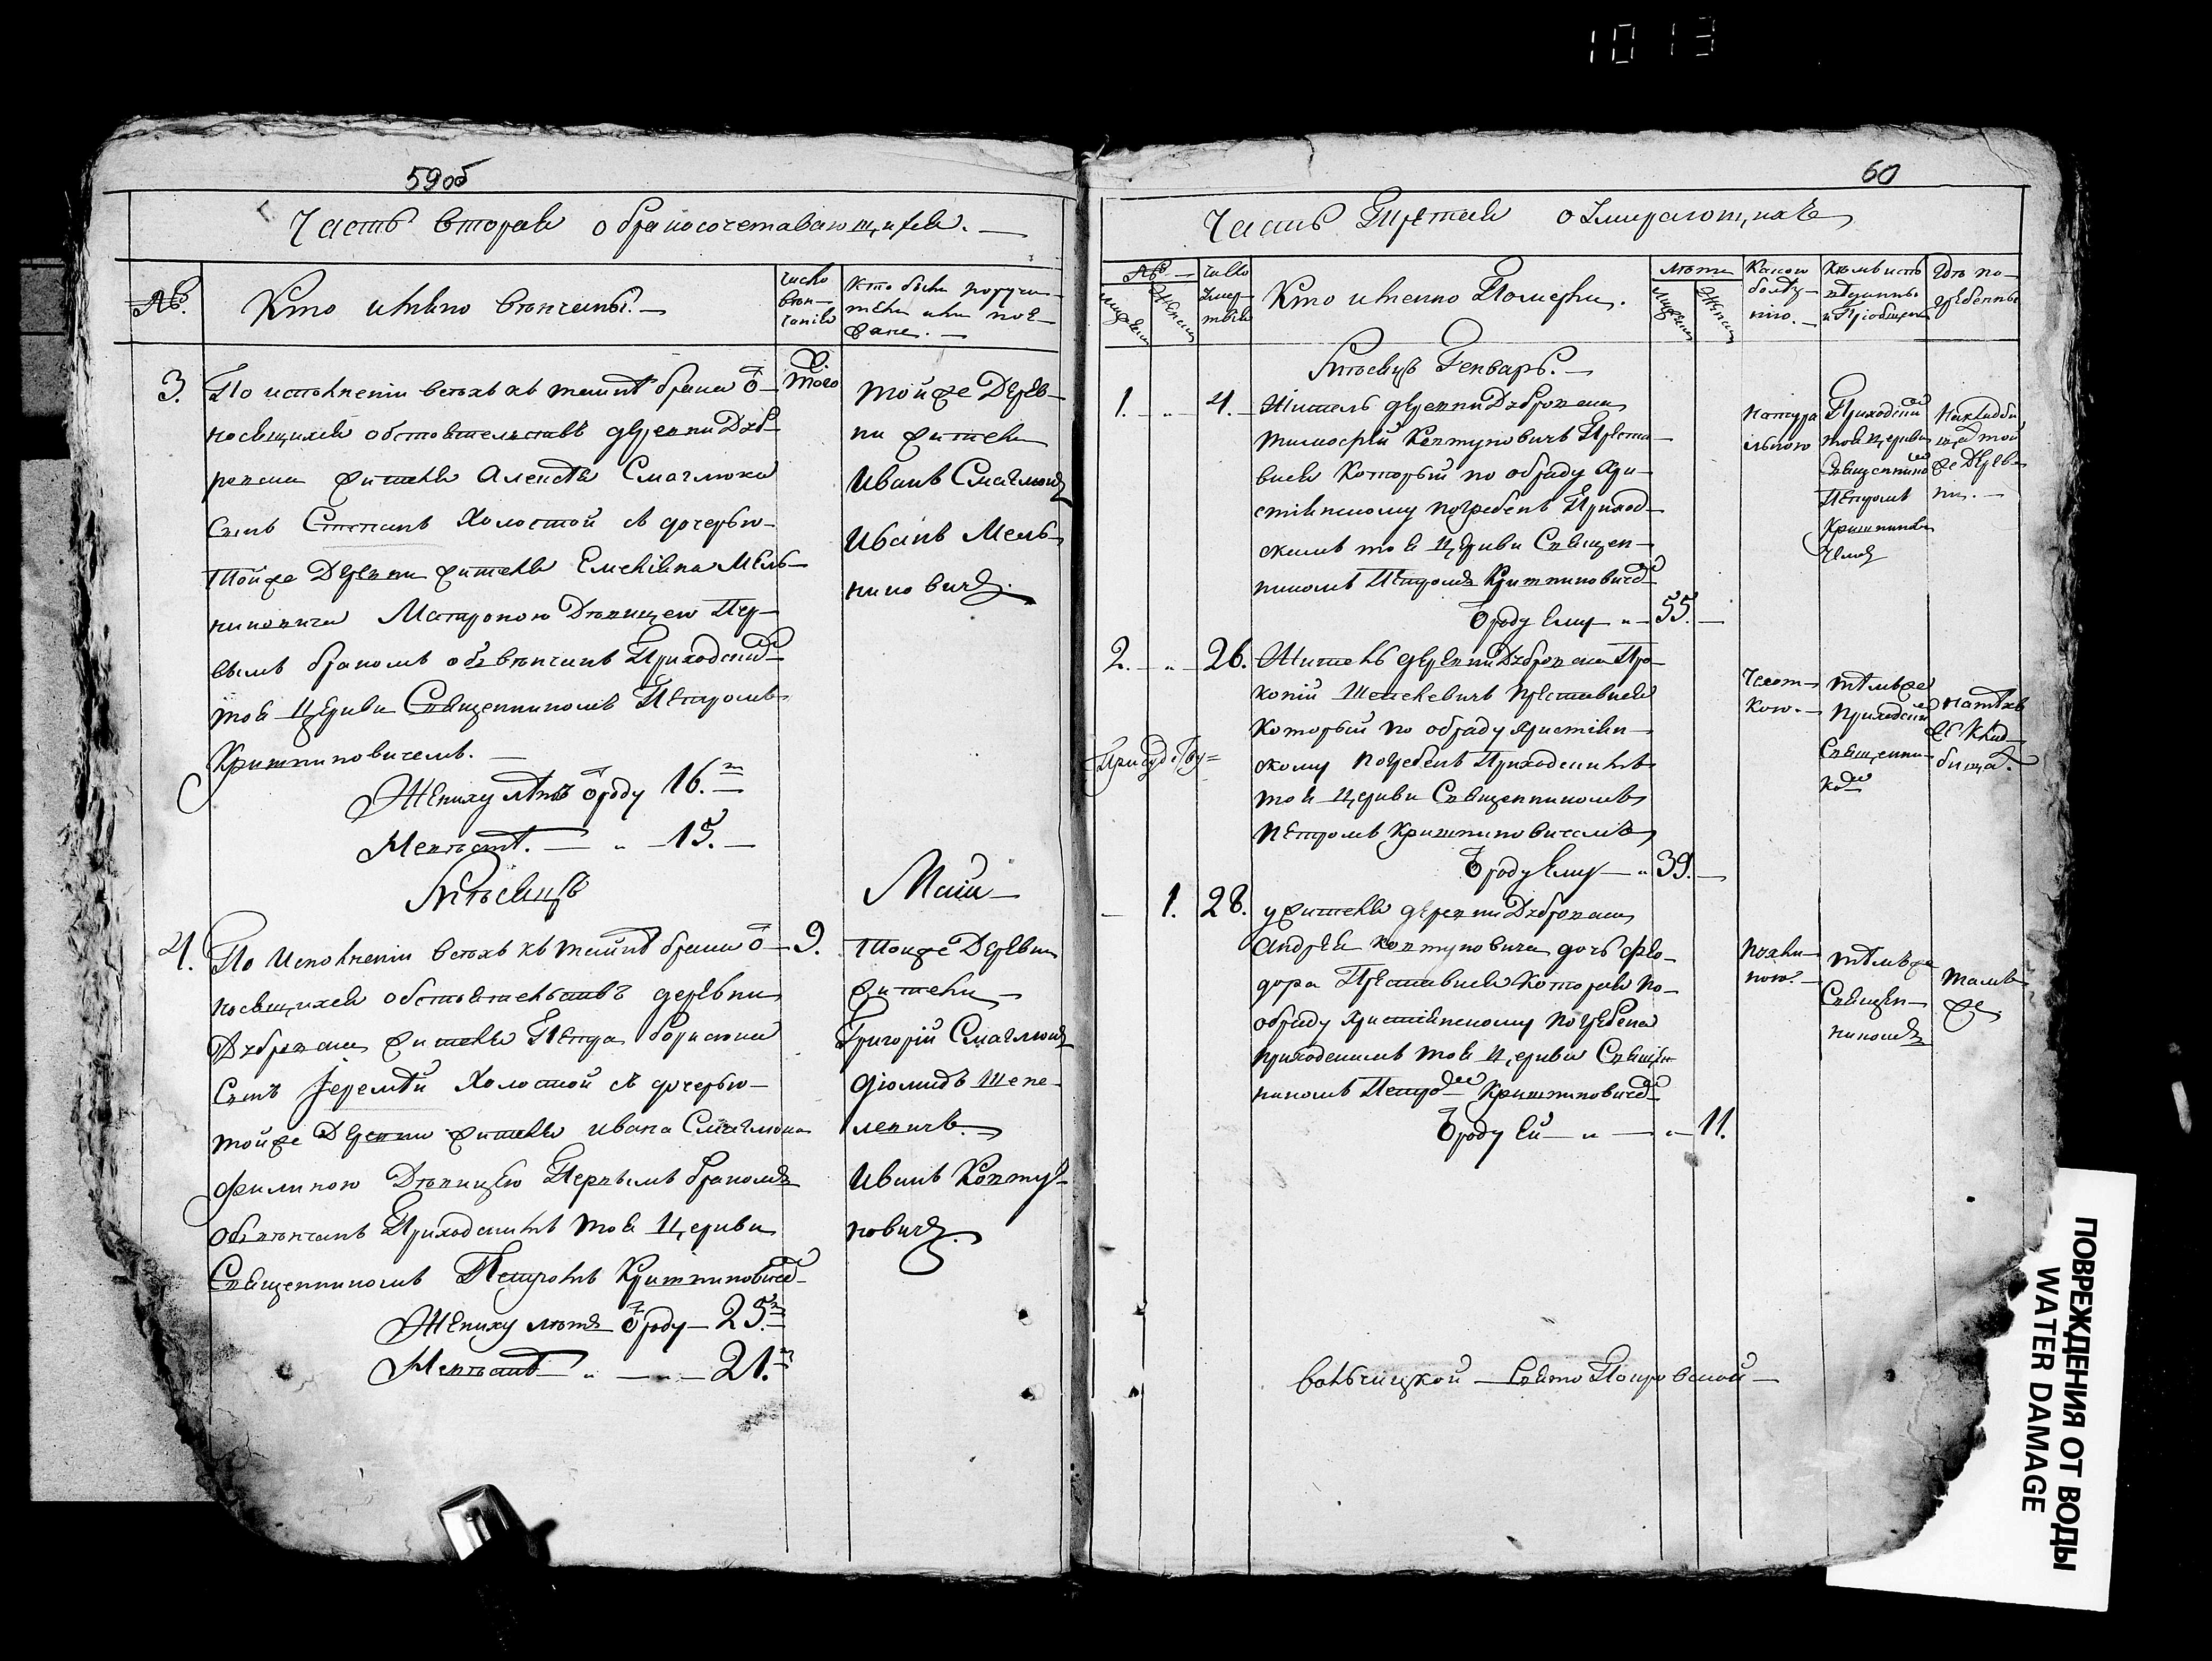 1013
59об
Часть вторая о бракосочетавающихся.
№.
Кто имено венчаны.
число
вен-
чания
Кто были поручи-
тели или по е-
зжане.
3.
По исполнении всехъ къ тайне брака о-
носящихся обстоятельствъ деревни Дуб-
ровки жителя Алексея Смаглюка
Сынъ Степанъ Холостой съ дочерью
тойже Деревни жителя Емелiяна Мель-
никовича Матроною Девицею Пер-
вымъ бракомъ обвенчанъ Приходским
тоя Церкви Священникомъ Петромъ
Криштиповичемъ.
Жениху летъ отроду 16.
Невесте. 15.
того
тойже Дерев-
ни жители
Иванъ Смаглюкъ
Иванъ Мель-
никовичъ.
Месяцъ
Маiя
4.
По Исполнении всехъ къ тайне брака о-
носящихся обстоятельствъ деревни
Дубровки жителя Петра борисюка
Сынъ Iеремей Холостой съ дочерью
тойже Деревни жителя Ивана Смаглюка
Филипою Девицею Первымъ бракомъ
обвенчанъ Приходскимъ тоя Церкви
Священникомъ Петромъ Криштиповичем
Жениху летъ отроду 25.
Невесте 21.
9.
Тоиже Деревни
жители
Григорiй Смаглюкъ
Дiомидъ Шепе-
левичъ.
Иванъ Ковту-
новичъ.
60
Часть Третiя о Умирающихъ
№
Мужеска
Женска
Число
Умер-
твiя
Кто именно Померли.
Лета
Мужеска
Женска
Какою
болез-
нiю.
Кемъ исп-
оведанны
и Прiобщены
Где по-
гребенны
Месяцъ Генварь.
1.
4.
Житель деревни Дубровки
Тимофей Ковтуновичъ Преста-
вися Который по обряду хри-
стiянскому погребенъ Приход-
скимъ тоя Церкви Священ-
никомъ Петромъ Криштиповичем
отроду Ему 55.
Натура
льною
Приходским
тоя церкви
Священником
Петромъ
Криштипови
чемъ
На кладби
ще той
же Дерев-
ни.
2.
26.
Житель деревни Дубровки Про-
копiй Шепелевичъ преставися
Который по обряду христiян-
скому Погребенъ Приходскимъ
тоя Церкви Священникомъ
Петромъ Криштиповичемъ
отроду Ему 39.
Чахот-
кою.
темъже
Приходским
Священни-
ком
На техъ
же Клад-
бища.
1.
28.
У жителя деревни Дубровки
Андрея Ковтуновича дочь Фео-
дора Преставися которая по
обряду христiянскому Погребена
приходскимъ тоя Церкви Священ-
никомъ Петром Криштиповичем
отроду Ей 11.
темъже
Священ-
никомъ
тамъ
же
Свято Покровской
ПОВРЕЖДЕНИЯ ОТ ВОДЫ
WATER DAMAGE